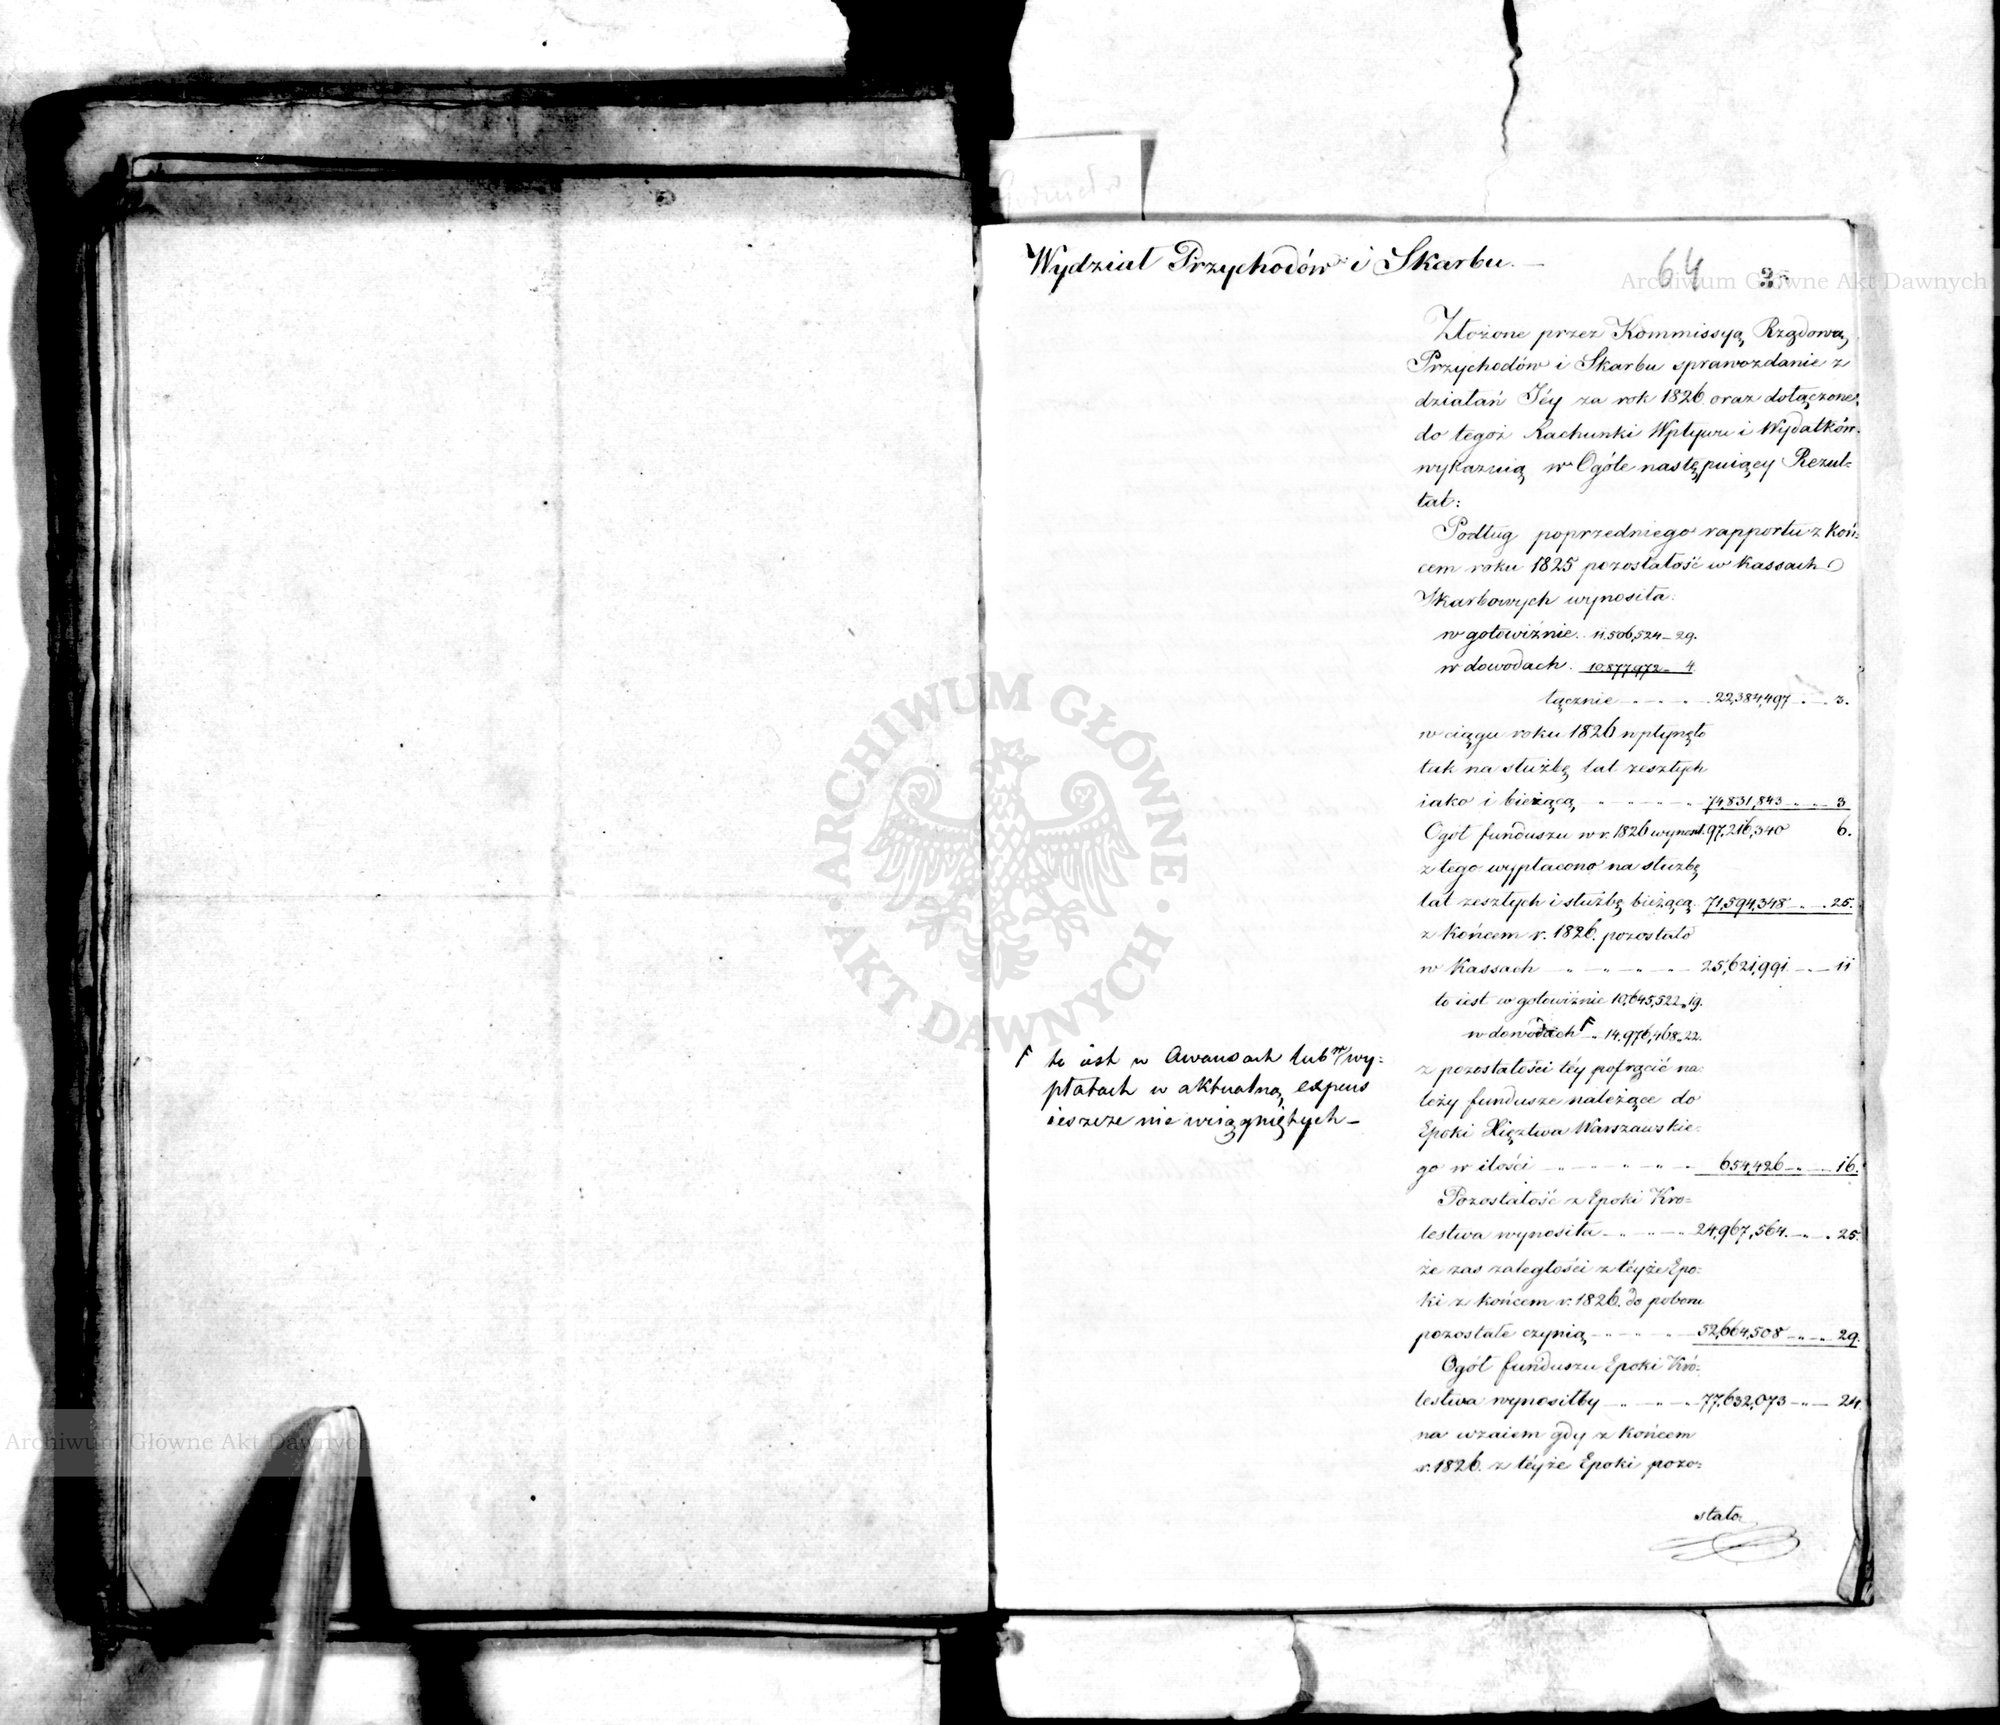 Wydział Przychodów i Skarbu. —
64
Złożone przez Kommissyą Rządową
Przychodów i Skarbu sprawozdanie z
działań Jéy za rok 1826 oraz dołączone
do tegoż Rachunki Wpływu i Wydatków
wykazuią w Ogóle następuiący Rezul=
tat:
Podług poprzedniego rapportu z koń=
cem roku 1825 pozostałość w Kassach
Skarbowych wynosiła:
w gotowiźnie. 11,506,524 – 29.
w dowodach. 10,877,972 – 4.
łącznie 22,384,497 3.
w ciągu roku 1826 wpłynęło
tak na służbę lat zeszłych
iako i bieżącą 74,831,843 3
Ogół funduszu w r. 1826 wynosił 97,216,340 6.
z tego wypłacono na służbę
lat zeszłych i służbę bieżącą 71,594,348 25.
z końcem r. 1826. pozostało
w Kassach 25,621,991 11
to iest w gotowiźnie 10,645,522 „ 19.
w dowodach Γ 14,976,468 „ 22.
Γ to iest w Awansach lub wy=
płatach w aktualną expens
ieszcze nie wciągniętych –
z pozostałości téy potrącić na=
leży fundusze należące do
Epoki Xięztwa Warszawskie=
go w ilości 654,426 16.
Pozostałość z Epoki Kró=
lestwa wynosiła 24,967,564. 25.
że zas zaległości z téyże Epo=
ki z końcem r. 1826. do poboru
pozostałe czynią 52,664,508 29.
Ogół funduszu Epoki Kró=
lestwa wynosiłby 77,632,073 24.
na wzaiem gdy z końcem
r. 1826. z téyże Epoki pozo=
stało
ARCHIWUM GŁÓWNE
AKT DAWNYCH
Archiwum Główne Akt Dawnych
Archiwum Główne Akt Dawnych